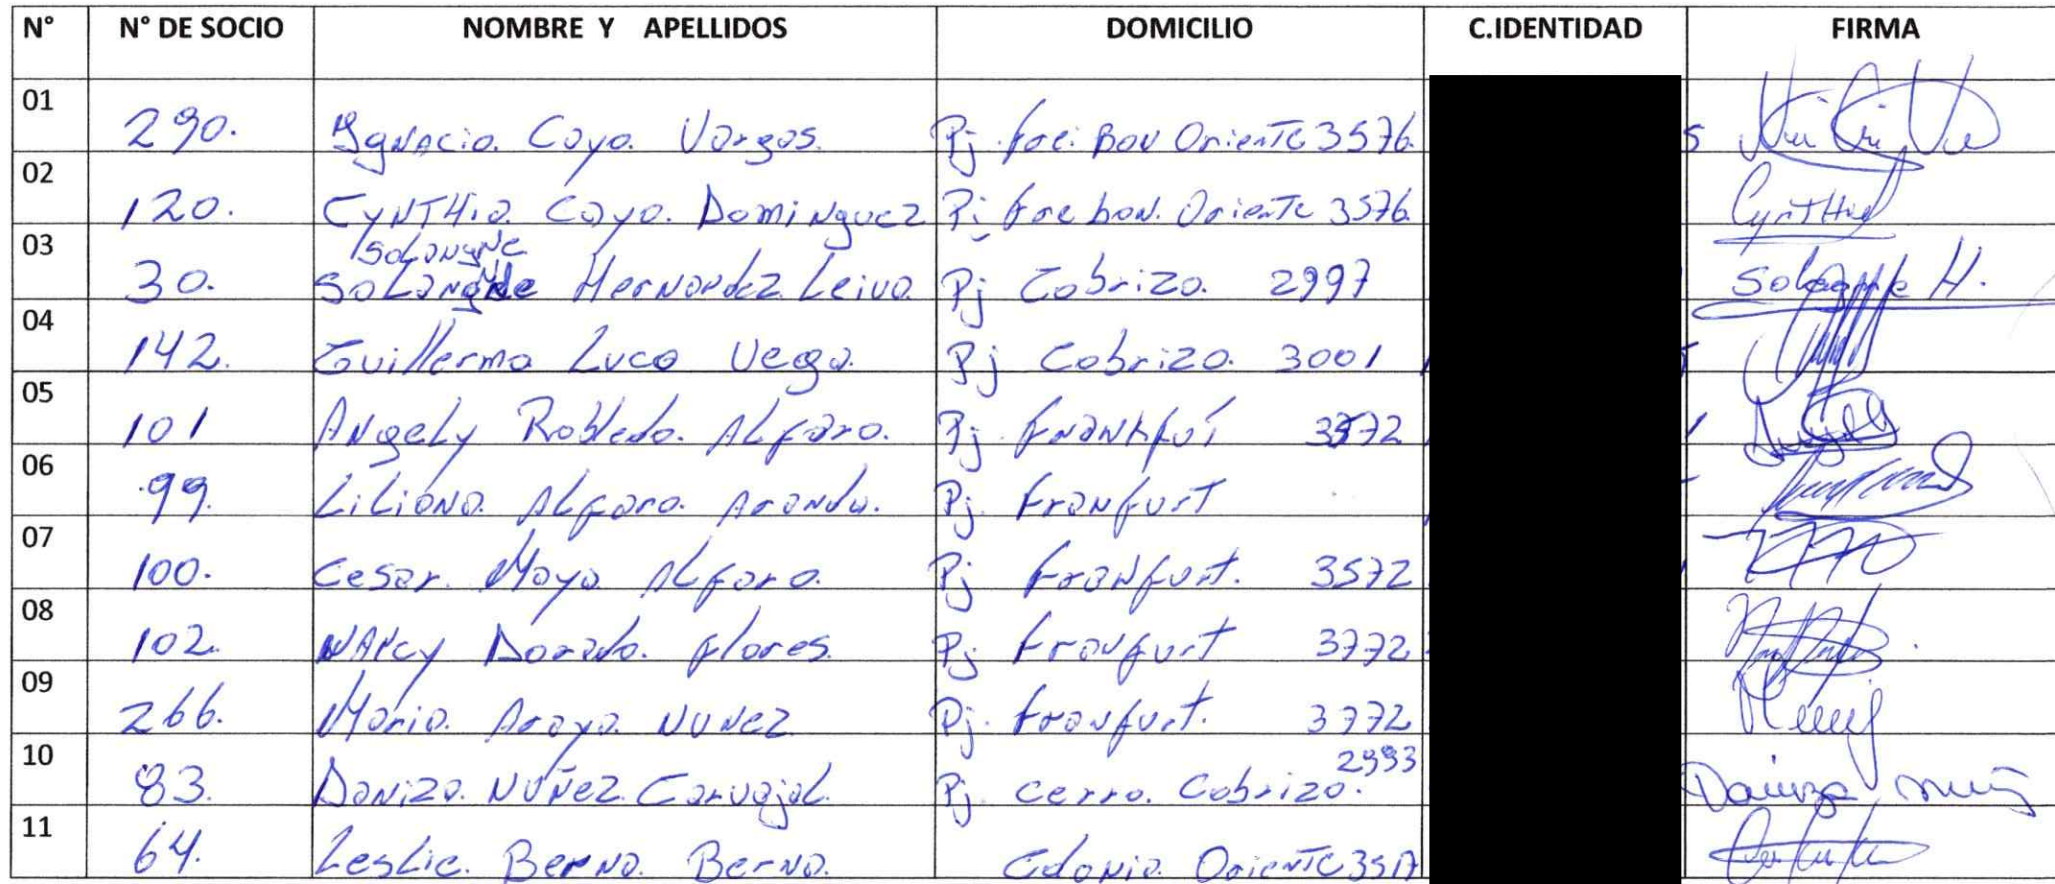 N° N° DE SOCIO NOMBRE Y APELLIDOS DOMICILIO C.IDENTIDAD FIRMA
01 290. Ignacio. Cayo. Vargas. Pj. Oriente 3576.
02 120. CyNTHia. Cayo. Dominguez Pj Oriente 3576.
Solangne
03 30. Hernandez Leiva. Pj Cobrizo. 2997 Solangne H.
04 142. Guillermo Luco Vega. Pj Cobrizo. 3001
05 101 Angely Robledo. Alfaro. Pj. 3572
06 99. Liliana. Alfaro. Aranda. Pj. Franfurt
07 100. Cesar. Moya Alfaro. Pj Franfurt. 3572
08 102. NANcy Dorado. Flores. Pj Franfurt 3772
09 266. Maria. Araya. NUNez Pj. Franfurt. 3772
2993
10 83. Daniza. NUÑez Carvajal. Pj. cerro. Cobrizo.
11 64. Leslie. Berna. Berna. Colonia. Oriente